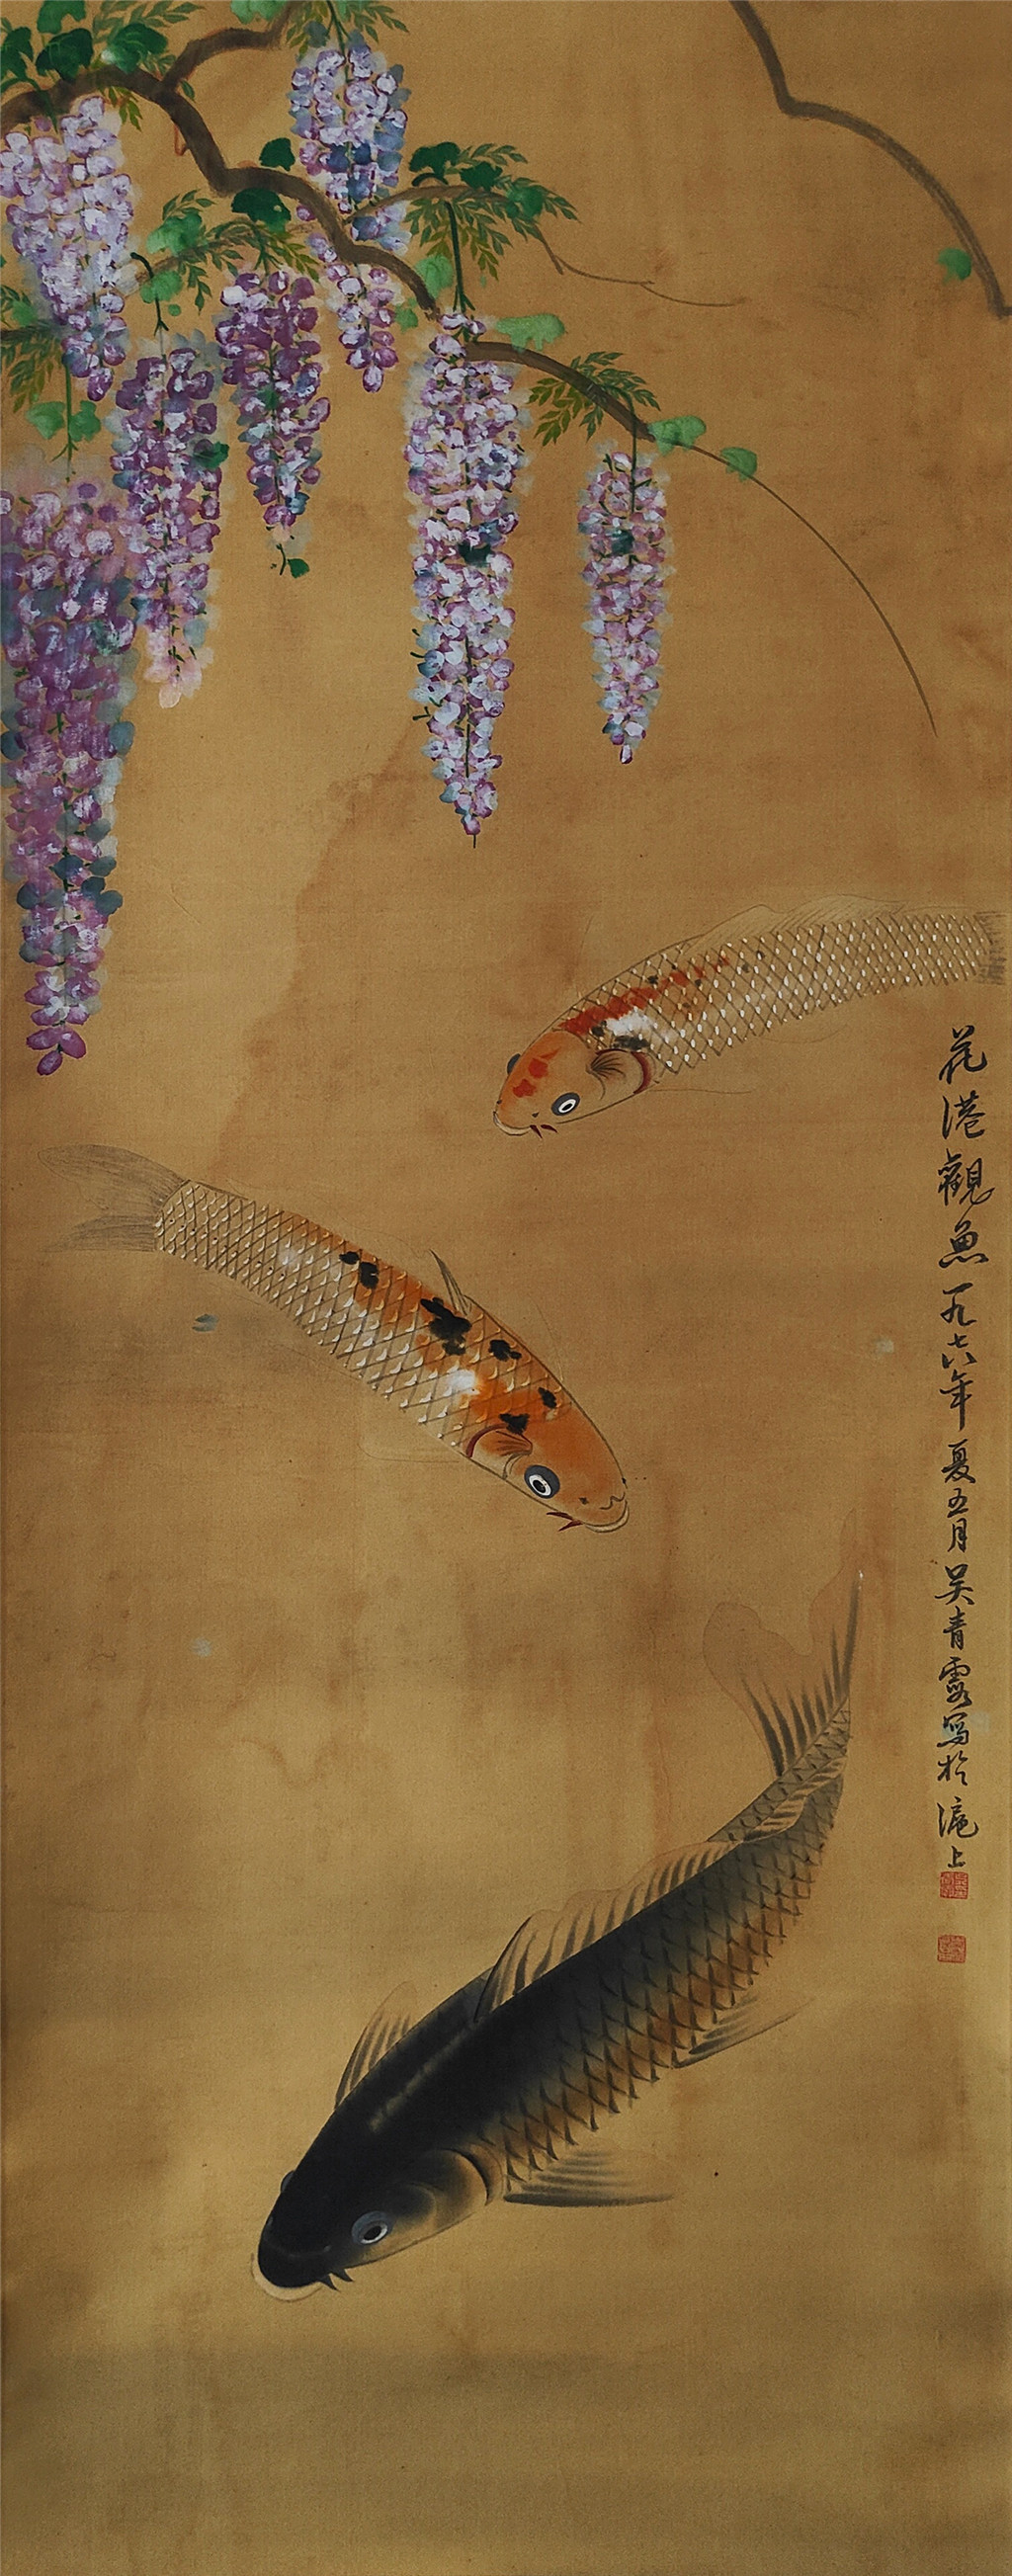 花港觀魚一九七六年夏五月吴青霞写於滬上